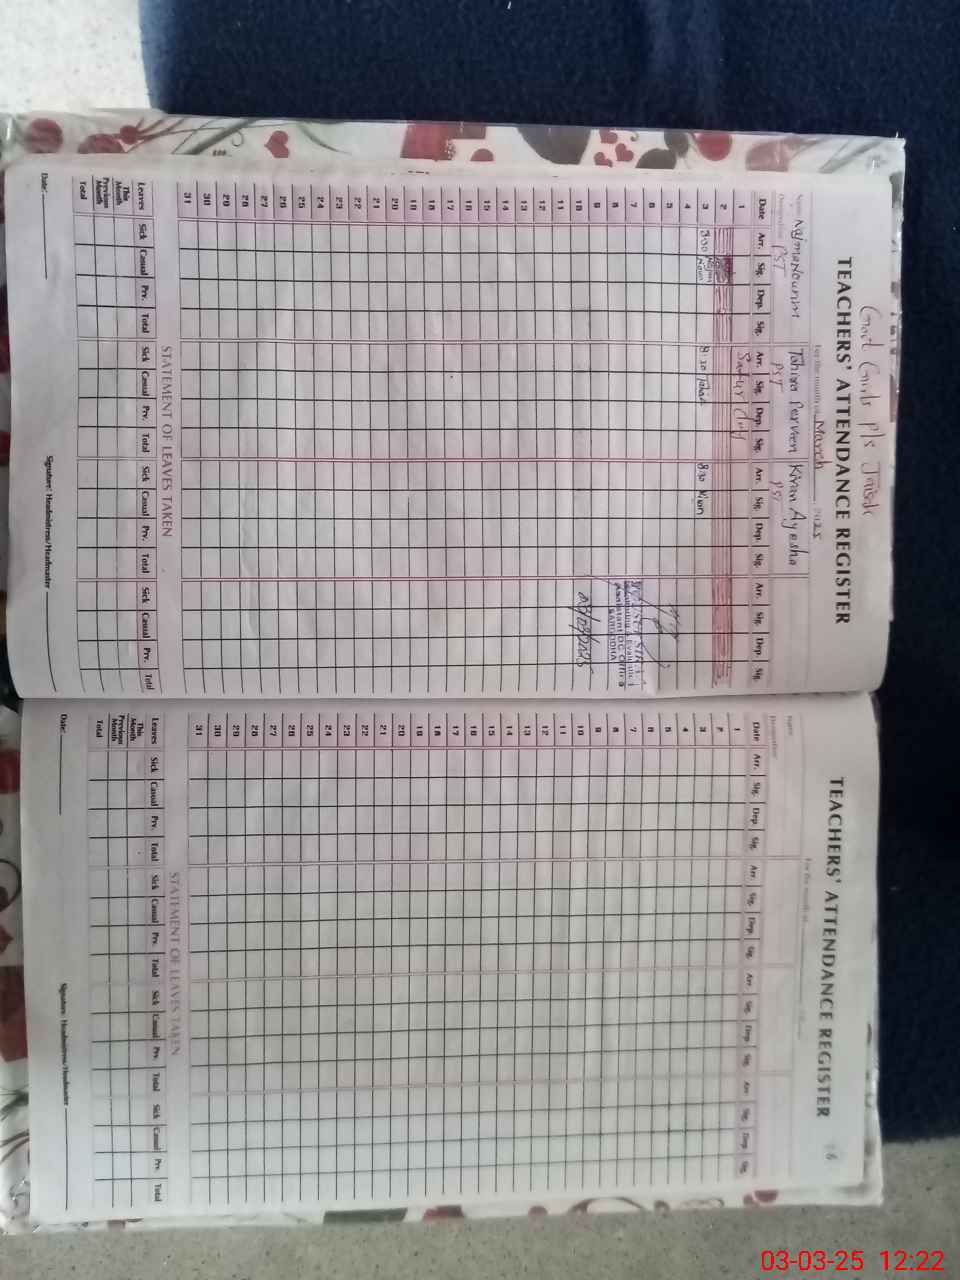 TEACHERS' ATTENDANCE REGISTER
For the month of March 2025
Name Tahira Perveen Kiran Ayesha
Designation PST PST PST
Date Arr. Sig. Dep. Sig. Arr. Sig. Dep. Sig. Arr. Sig. Dep. Sig. Arr. Sig. Dep. Sig.
1
2
3 8:30 8:30 8:30 Kiran
4
5
6
7
8 Assistant
9 SARGODHA
10
11
12
13
14
15
16
17
18
19
20
21
22
23
24
25
26
27
28
29
30
31
STATEMENT OF LEAVES TAKEN
Leaves Sick Casual Prv. Total Sick Casual Prv. Total Sick Casual Prv. Total Sick Casual Prv. Total
This Month
Previous Month
Total
Date: Signature: Headmistress/Headmaster
TEACHERS' ATTENDANCE REGISTER
For the month of
Name
Designation
Date Arr. Sig. Dep. Sig. Arr. Sig. Dep. Sig. Arr. Sig. Dep. Sig. Arr. Sig. Dep. Sig.
1
2
3
4
5
6
7
8
9
10
11
12
13
14
15
16
17
18
19
20
21
22
23
24
25
26
27
28
29
30
31
STATEMENT OF LEAVES TAKEN
Leaves Sick Casual Prv. Total Sick Casual Prv. Total Sick Casual Prv. Total Sick Casual Prv. Total
This Month
Previous Month
Total
Date: Signature: Headmistress/Headmaster
03-03-25 12:22